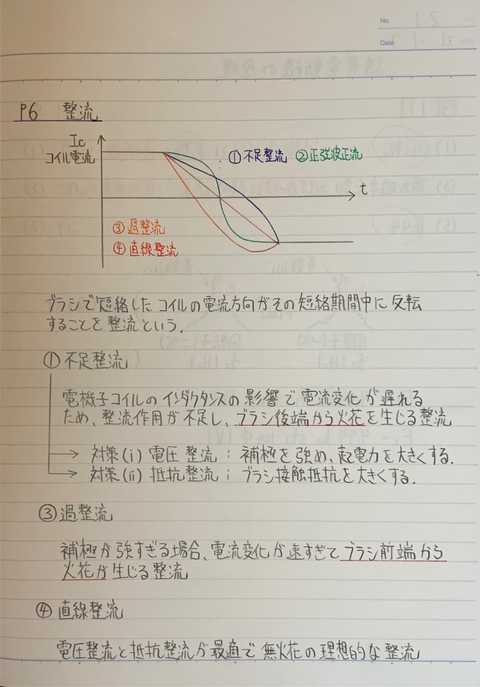 No.
Date
P6 整流
Ic
コイル電流
①不足整流 ②正弦波正流
t
③過整流
④直線整流
ブラシで短絡したコイルの電流方向がその短絡期間中に反転
することを整流という.
①不足整流
電機子コイルのインダクタンスの影響で電流変化が遅れる
ため、整流作用が不足し、ブラシ後端から火花を生じる整流
対策(i) 電圧整流 : 補極を強め、起電力を大きくする.
対策(ii) 抵抗整流 ; ブラシ接触抵抗を大きくする.
③過整流
補極が強すぎる場合、電流変化が速すぎてブラシ前端から
火花が生じる整流
④直線整流
電圧整流と抵抗整流が最適で無火花の理想的な整流